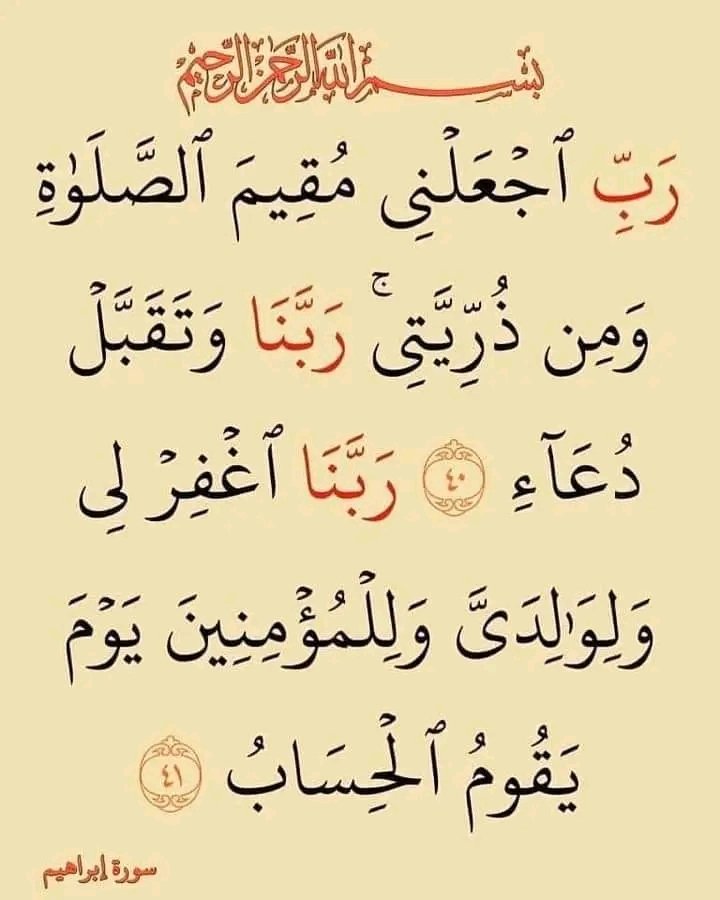 بِسْمِ اللَّهِ الرَّحْمَنِ الرَّحِيمِ
رَبِّ ٱجْعَلْنِى مُقِيمَ ٱلصَّلَوٰةِ
وَمِن ذُرِّيَّتِى ۚ رَبَّنَا وَتَقَبَّلْ
دُعَآءِ ٤٠ رَبَّنَا ٱغْفِرْ لِى
وَلِوَٰلِدَىَّ وَلِلْمُؤْمِنِينَ يَوْمَ
يَقُومُ ٱلْحِسَابُ ٤١
سورة إبراهيم